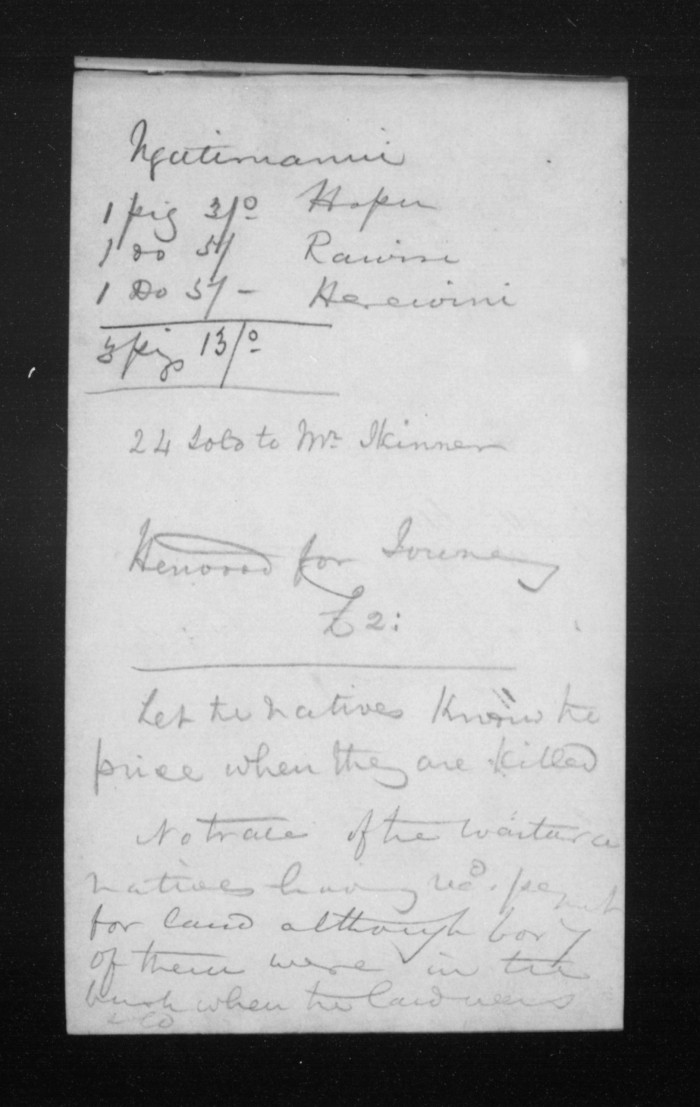 Ngatimamui
1 pig 3/0 Hopu
1 Do 5/ Rawiri
1 Do 5/- Herewini
3 pigs 13/0
24 sold to Mr. Skinner
Henwood for
£2:
Let the natives Know the
price when they are Killed
No trace of the Waitara
natives having recd.
for land although
of them were in the
bush when the land was